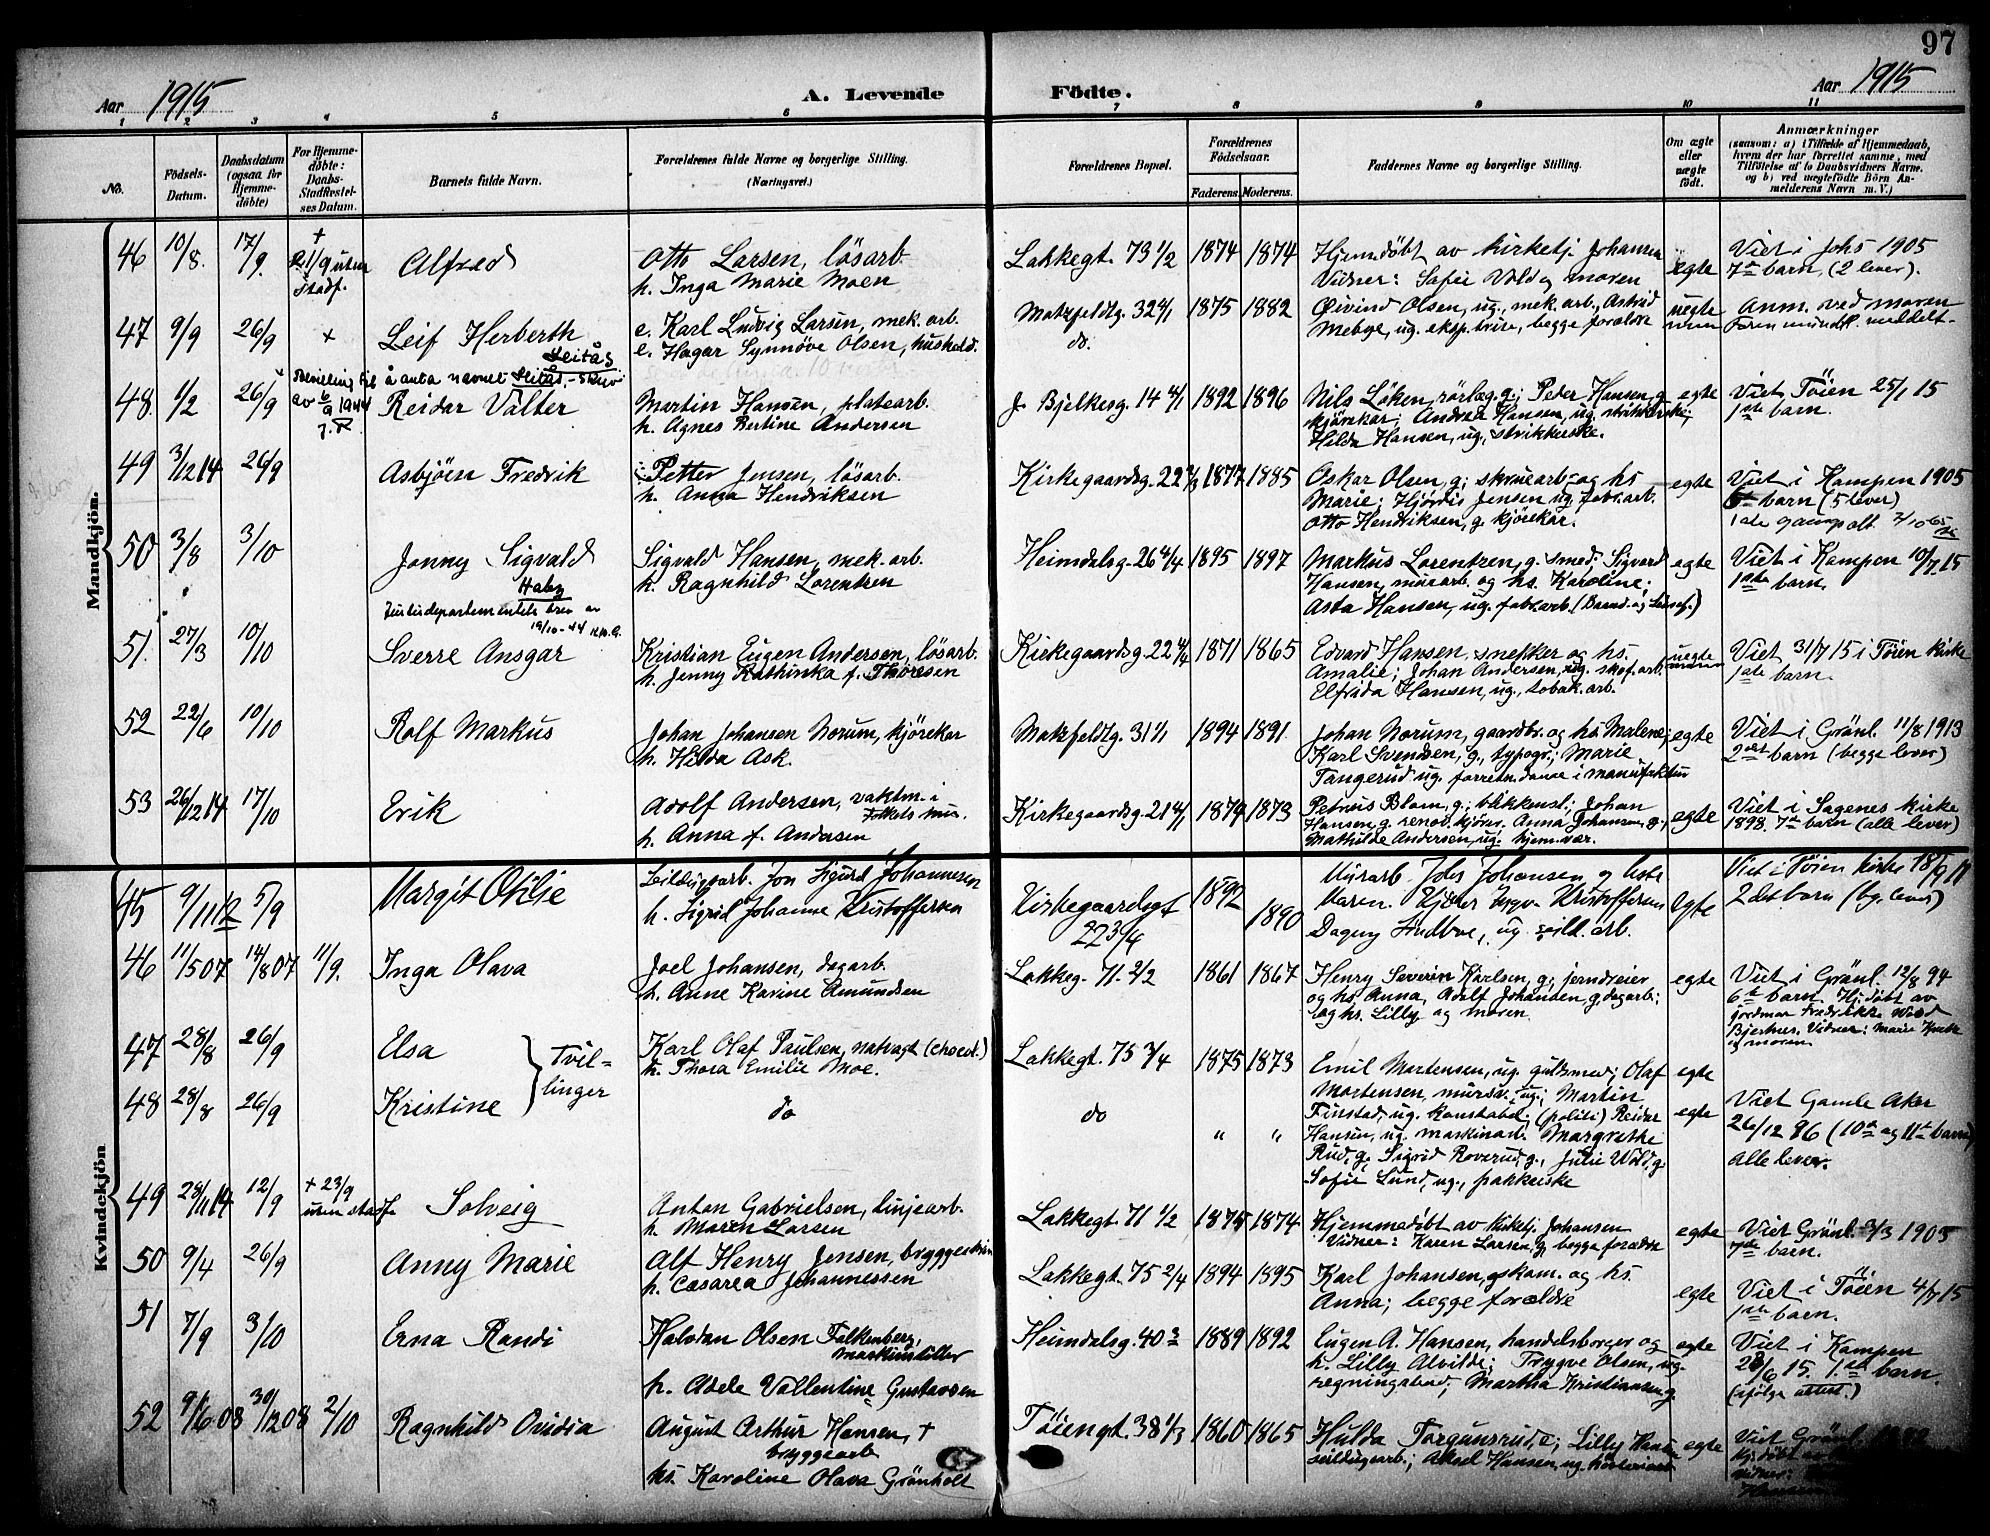 97
Aar 1915
A. Levende Födte.
Aar 1915
1 2 3 4 5 6 7 8 9 10 11
No.
Födsels-Datum.
Daabsdatum (ogsaa for Hjemme-döbte)
For Hjemme-döbte: Daabs-Stadfæstel-ses Datum.
Barnets fulde Navn.
Forældrenes fulde Navne og borgerlige Stilling. (Næringsvei.)
Forældrenes Bopæl.
Forældrenes Födselsaar.
Faderens Moderens.
Faddernes Navne og borgerlige Stilling.
Om ægte eller uægte födt.
Anmærkninger
(saasom: a) i Tilfælde af Hjemmedaab,
hvem der har forrettet samme, med
Tilföielse af to Daabsvidners Navne.
og b) ved uægtefödte Börn An-
melderens Navn m. V.)
Mandkjön.
46 10/8. 17/9. + Alfred
Otto Larsen, lösarb.
h. Inga Marie Moen
Lakkegt. 73 1/2 1874 1874
Hjemdöbt av kirketj. Johansen
Vidner: Sofie Vold og moren
egte
Viet i Johs 1905
7de barn (2 lever).
47 9/9 26/9 + Leif Herberth
e. Karl Ludvig Larsen, mek. arb.
e. Hagar Synnöve Olsen, hushold.
Motzfeldtg. 32 4/1 do. 1875 1882
Øivind Olsen, ug. mek. arb., Astrid
Mebye, ug. eksp.trise, begge forældre
uegte
Anm. ved moren
Heitås
Bevilling til å anta navnet Heitås
av 6/9 1944
48. 1/2 26/9 Reidar Valter
Martin Hansen, platearb.
h. Agnes Bertine Andersen
J. Bjelkesg. 14 4/1 1892 1896
Nils Löken, rörlæg. g; Peder Hansen, g
kjörekar; Andrea Hansen, ug. strikkerske;
Hilda Hansen, ug., strikkerske.
egte
Viet Töien 25/1 15
1ste barn.
49 3/12 14 26/9 Asbjörn Fredrik
Petter Jensen, lösarb.
h. Anna Hendriksen
Kirkegaardsg. 22 1877 1885
Oskar Olsen, g; skruearb. og hs
Marie; Hjördis Jensen ug, fabr. arb.
Otto Hendriksen, g. kjörekar.
egte
Viet i Kampen 1905
barn (5 lever)
50 3/8 3/10 Jonny Sigvald
Haby
Justisdepartementets brev av
19/10-44
Sigvald Hansen, mek. arb.
h. Ragnhild Lorentzen
Heimdalsg. 26 4/4 1895 1897
Markus Lorentzen, g. smed; Sigvard
Hansen, murarb. og hs. Karoline;
Asta Hansen, ug. fabr. arb.
egte
Viet i Kampen 10/7 15
1ste barn.
51. 27/3 10/10 Sverre Ansgar
Kristian Eugen Andersen, lösarb.
h. Jenny Kathinka f. Thoresen
Kirkegaardsg. 22 4/4 1871 1865
Edvard Hansen, snekker og hs.
Amalie; Johan Andersen, ug. skof. arb.
Elfrida Hansen, ug., tobak. arb.
uegte
Viet 31/7 15 i Töien kirke
1ste barn.
52 22/6 10/10 Rolf Markus
Johan Johansen Norum, kjörekar
h. Hilda Ask.
Motzfeldtg. 31 4/1 1894 1891
Johan Norum, gaardbr. og hs Malene;
Karl Svendsen, g., typogr.; Marie
Tangerud ug. forretn. dame i manufaktur
egte
Viet i Grönl. 11/8 1913
2det barn (begge lever)
53 26/12 14 17/10 Erik
Adolf Andersen, vaktm. i
Folkets hus.
h. Anna f. Andersen
Kirkegaardsg. 21 4/1 1874 1873
Petrus Blom, g.; blikkensl.; Johan
Hansen, g. renov. kjörer. Anna Johansen, g.;
Mathilde Andersen, ug. hjem. vær.
egte
Viet i Sagenes kirke
1898. 7de barn (alle lever)
Kvindekjön
45 9/11 12 5/9 Margit Otilie
Seildugsarb. Jon Sigurd Johannesen
h. Sigrid Johanne Kristoffersen
Kirkegaardsgt
22 3/4
1892 1890
Murarb. Johansen og hustr
Maren. Kristoffersen
Dagny Lindboe, ug. seild. arb.
Egte
Viet i Töien kirke 18/9 11
2det barn (bg. lever)
46 11/5 07 14/8 07 11/9. Inga Olava
Joel Johansen, dagarb.
h. Anne Karine Amundsen
Lakkeg. 71. 2/2 1861 1867
Henry Severin Karlsen, g., jerndreier
og hs Anna, Adolf Johansen, g, dagarb;
og hs. Lilly og moren.
egte
Viet i Grönl. 12/8 94
6te barn. Hj. döbt av
jordmor Fredrikke Wold
Vidner: Marie
og moren.
47 28/8 26/9 Elsa
48 28/8 26/9 Kristine
Tvil-
linger
Karl Olaf Paulsen, natvagt
h. Thora Emilie Moe.
do
Lakkegt. 75 3/4 1875 1873
do " "
Emil Mortensen, ug. guldsmed; Olaf
Mortensen, mursv. ug.; Martin
Finstad, ug. konstabel; (politi) Reidar
Hansen, ug. maskinarb. Margrethe
Rud, g. Sigrid Roverud, g., Julie Wold, g.
Sofie Lund, ug., pakkerske
egte
egte
Viet Gamle Aker
26/12 96 (10de og 11te barn)
Alle lever.
49 28/11 14 12/9 + 23/9 uten stadf. Solveig
Anton Gabrielsen, linjearb.
h. Maren Larsen
Lakkegt. 71 1/2 1875 1874
Hjemmedöbt av kirketj. Johansen
Vidner: Karen Larsen, g, begge forældre
egte
Viet Grönl. 3/3 1905
7de barn.
50 9/4 26/9 Anny Marie
Alf Henry Jensen,
h. Cæsarea Johannessen
Lakkegt. 75 2/4 1894 1895
Karl Johansen, og hs.
Anna; begge forældre
egte
Viet i Töien 4/7 15
1ste barn.
51 7/9 3/10 Erna Randi
Halvdan Olsen Falkenberg,
maskinstiller
h. Adele Vallentine Gustavsen
Heimdalsg. 40 3 1889 1892
Eugen A. Hansen, handelsborger og
h. Lilly Alvilde; Trygve Olsen, ug.
regningsbud; Martha Kristiansen g
egte
Viet i Kampen
28/6 15. 1ste barn.
52 9/6 08 30/12 08 2/10 Ragnhild Ovidia
August Arthur Hansen, +
bryggearb
hs. Karoline Olava Grönholt
Töiengt. 38 1/3 1860 1865
Hulda Torgunsrud, Lilly Hansen
seildugsarb; Aksel Hansen, ug.
egte
Viet Grönl.
Hj. döbt av
vidner: